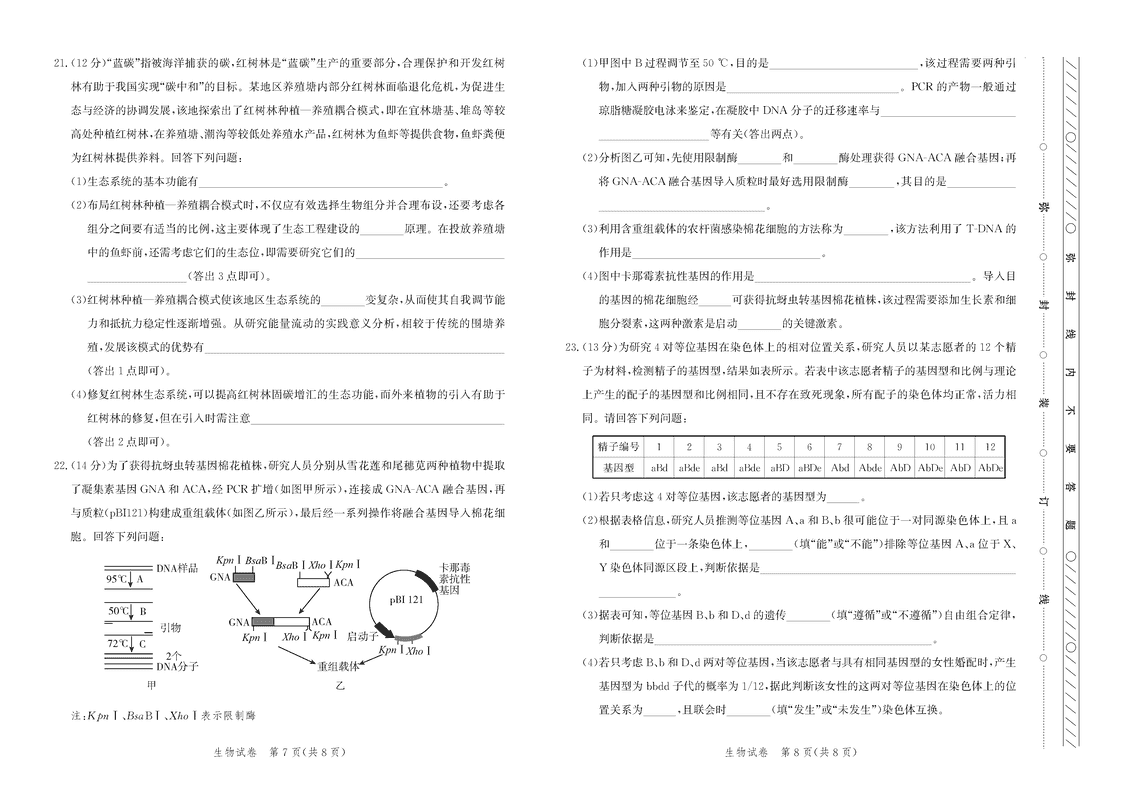 21.(12 分)“蓝碳”指被海洋捕获的碳,红树林是“蓝碳”生产的重要部分,合理保护和开发红树
林有助于我国实现“碳中和”的目标。某地区养殖塘内部分红树林面临退化危机,为促进生
态与经济的协调发展,该地探索出了红树林种植—养殖耦合模式,即在宜林塘基、堆岛等较
高处种植红树林,在养殖塘、潮沟等较低处养殖水产品,红树林为鱼虾等提供食物,鱼虾粪便
为红树林提供养料。回答下列问题:
(1)生态系统的基本功能有____________。
(2)布局红树林种植—养殖耦合模式时,不仅应有效选择生物组分并合理布设,还要考虑各
组分之间要有适当的比例,这主要体现了生态工程建设的______原理。在投放养殖塘
中的鱼虾前,还需考虑它们的生态位,即需要研究它们的____________
____________(答出 3 点即可)。
(3)红树林种植—养殖耦合模式使该地区生态系统的______变复杂,从而使其自我调节能
力和抵抗力稳定性逐渐增强。从研究能量流动的实践意义分析,相较于传统的围塘养
殖,发展该模式的优势有____________
(答出 1 点即可)。
(4)修复红树林生态系统,可以提高红树林固碳增汇的生态功能,而外来植物的引入有助于
红树林的修复,但在引入时需注意____________
(答出 2 点即可)。
22.(14 分)为了获得抗蚜虫转基因棉花植株,研究人员分别从雪花莲和尾穗苋两种植物中提取
了凝集素基因 GNA 和 ACA,经 PCR 扩增(如图甲所示),连接成 GNA-ACA 融合基因,再
与质粒(pBI121)构建成重组载体(如图乙所示),最后经一系列操作将融合基因导入棉花细
胞。回答下列问题:
DNA样品
95℃ A
50℃ B
引物
72℃ C
2个
DNA分子
甲
KpnⅠ BsaBⅠ
GNA
BsaBⅠ XhoⅠ KpnⅠ
ACA
GNA ACA
KpnⅠ XhoⅠ KpnⅠ
重组载体
卡那霉
素抗性
基因
pBI 121
启动子
KpnⅠ XhoⅠ
乙
注:KpnⅠ、BsaBⅠ、XhoⅠ表示限制酶
生物试卷 第 7 页(共 8 页)
(1)甲图中 B 过程调节至 50 ℃,目的是____________,该过程需要两种引
物,加入两种引物的原因是____________。PCR 的产物一般通过
琼脂糖凝胶电泳来鉴定,在凝胶中 DNA 分子的迁移速率与____________
____________等有关(答出两点)。
(2)分析图乙可知,先使用限制酶______和______酶处理获得 GNA-ACA 融合基因;再
将 GNA-ACA 融合基因导入质粒时最好选用限制酶______,其目的是____________
____________。
(3)利用含重组载体的农杆菌感染棉花细胞的方法称为______,该方法利用了 T-DNA 的
作用是____________。
(4)图中卡那霉素抗性基因的作用是____________。导入目
的基因的棉花细胞经______可获得抗蚜虫转基因棉花植株,该过程需要添加生长素和细
胞分裂素,这两种激素是启动______的关键激素。
23.(13 分)为研究 4 对等位基因在染色体上的相对位置关系,研究人员以某志愿者的 12 个精
子为材料,检测精子的基因型,结果如表所示。若表中该志愿者精子的基因型和比例与理论
上产生的配子的基因型和比例相同,且不存在致死现象,所有配子的染色体均正常,活力相
同。请回答下列问题:
精子编号 1 2 3 4 5 6 7 8 9 10 11 12
基因型 aBd aBde aBd aBde aBD aBDe Abd Abde AbD AbDe AbD AbDe
(1)若只考虑这 4 对等位基因,该志愿者的基因型为______。
(2)根据表格信息,研究人员推测等位基因 A、a 和 B、b 很可能位于一对同源染色体上,且 a
和______位于一条染色体上,______(填“能”或“不能”)排除等位基因 A、a 位于 X、
Y 染色体同源区段上,判断依据是____________
____________。
(3)据表可知,等位基因 B、b 和 D、d 的遗传______(填“遵循”或“不遵循”)自由组合定律,
判断依据是____________。
(4)若只考虑 B、b 和 D、d 两对等位基因,当该志愿者与具有相同基因型的女性婚配时,产生
基因型为 bbdd 子代的概率为 1/12,据此判断该女性的这两对等位基因在染色体上的位
置关系为______,且联会时______(填“发生”或“未发生”)染色体互换。
生物试卷 第 8 页(共 8 页)
弥 封 装 订 线
弥 封 线 内 不 要 答 题